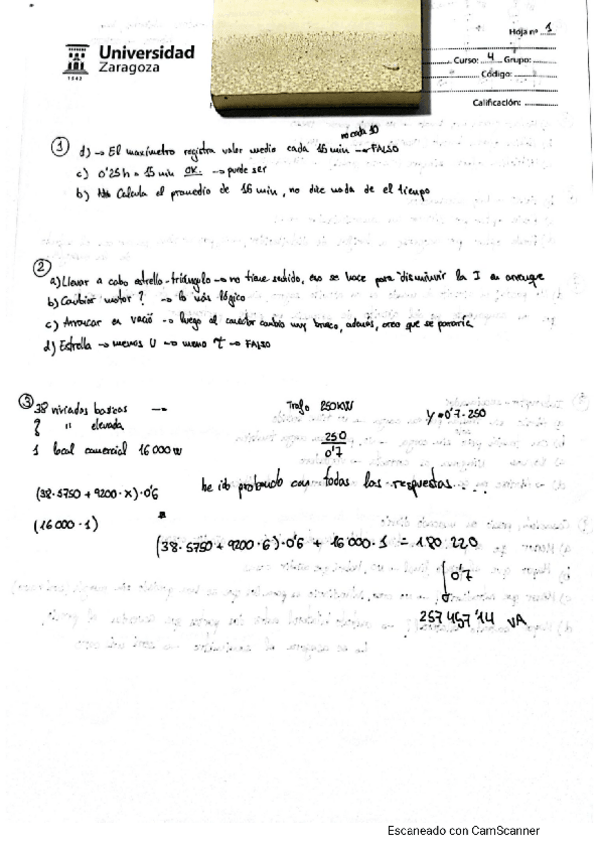 Hoja nº 1
Universidad
Zaragoza
1542
Curso: 4 Grupo:
Código:
Calificación:
no cada 10
① d) → El maxímetro registra valor medio cada 15 min → FALSO
c) 0'25h = 15 min OK. → puede ser
b) Calcula el promedio de 15 min, no dice nada de el tiempo
②
a) Llevar a cabo estrella-triángulo → no tiene sentido, eso se hace para disminuir la I en arranque
b) Cambiar motor? → lo más lógico
c) Arrancar en vacío → luego al conectar cambio muy brusco, además, creo que se pararía
d) Estrella → menos U → menos τ → FALSO
③ 38 viviendas basicas → Trafo 250 kW y = 0'7·250
? " elevada 250
1 local comercial 16 000 W 0'7
(38·5750 + 9200·x)·0'6 he ido probando con todas las respuestas....
(16 000·1)
(38·5750 + 9200·6)·0'6 + 16 000·1 = 180 220
0'7
257 457'14 VA
Escaneado con CamScanner